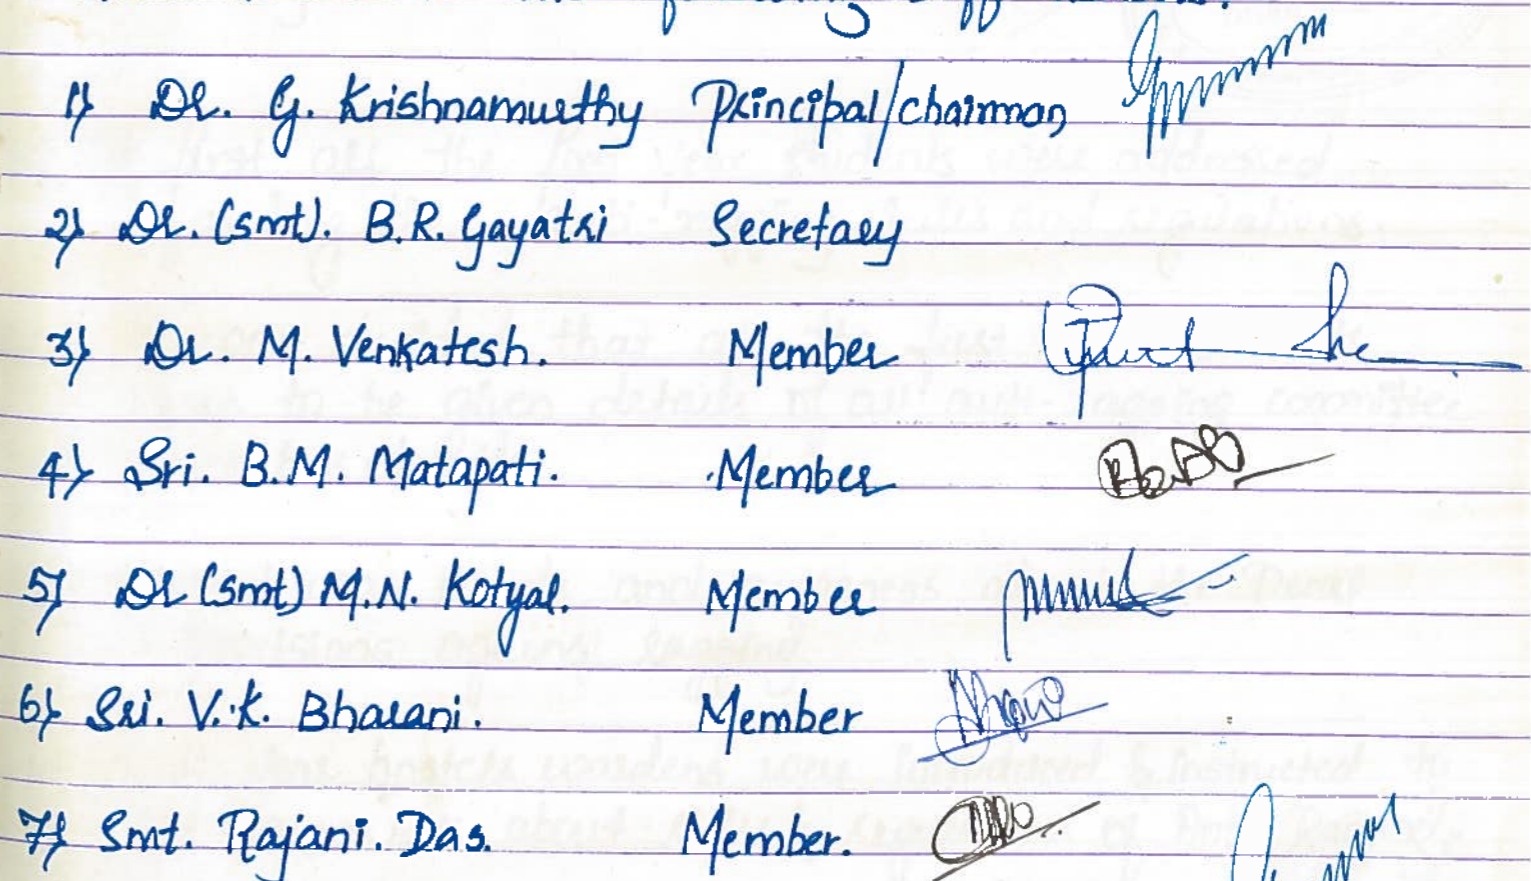 1) Dr. G. Krishnamurthy Principal/chairman
2) Dr. (smt). B.R. Gayatri Secretary
3) Dr. M. Venkatesh. Member
4) Sri. B.M. Matapati. Member
5) Dr (smt) M.N. Kotyal. Member
6) Sri. V.K. Bharani. Member
7) Smt. Rajani. Das. Member.